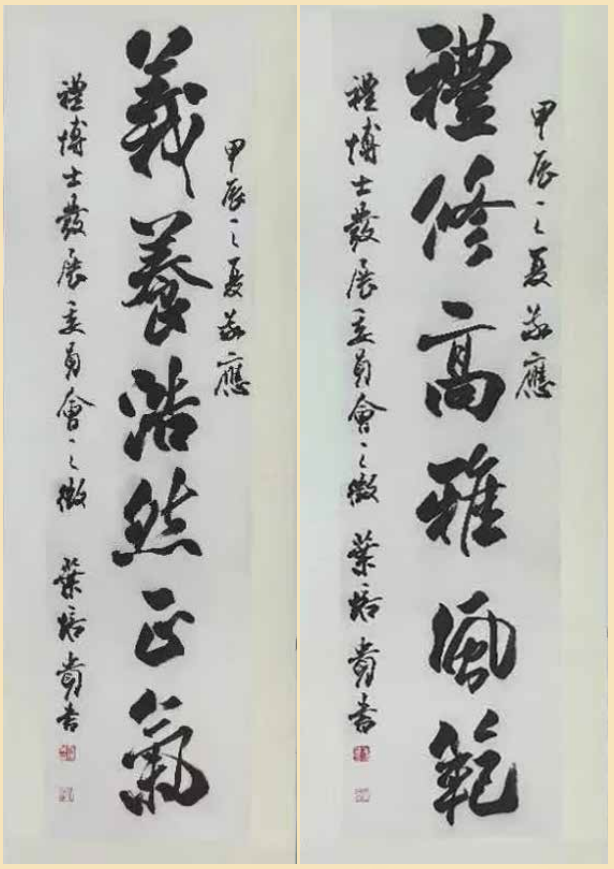 甲辰之夏敬應
禮修高雅風範
禮博士發展委員會之徵 葉培貴書
甲辰之夏敬應
義養浩然正氣
禮博士發展委員會之徵 葉培貴書